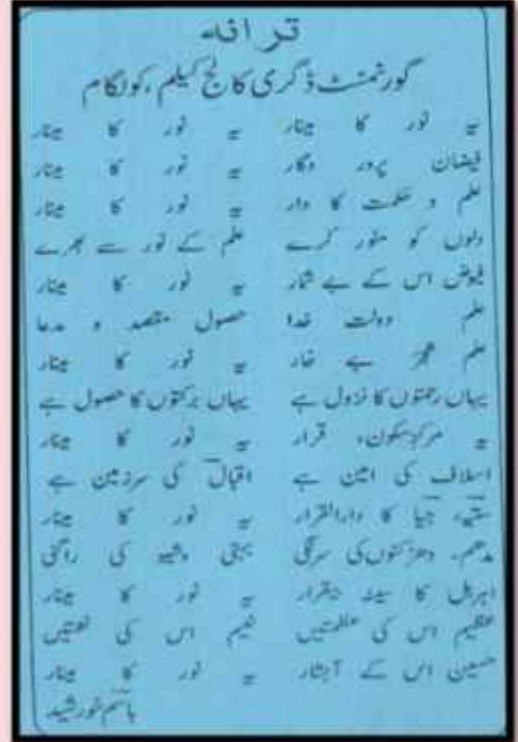 ترانہ
گورنمنٹ ڈگری کالج کیلم، کولگام
یہ نور کا مینار یہ نور کا مینار
فیضان پرور دگار یہ نور کا مینار
علم و حکمت کا دار یہ نور کا مینار
دلوں کو منور کرے علم کے نور سے بھرے
فیوض اس کے بے شمار یہ نور کا مینار
علم دولت خدا حصول مقصد و مدعا
علم بے خار یہ نور کا مینار
یہاں رحمتوں کا نزول ہے یہاں برکتوں کا حصول ہے
یہ مرکز سکون، قرار یہ نور کا مینار
اسلاف کی امین ہے اقبالؔ کی سرزمین ہے
کا دارالقرار یہ نور کا مینار
مدھم، دھڑکنوں کی بہتی کی راگنی
کا سینہ بیقرار یہ نور کا مینار
عظیم اس کی عظمتیں اس کی نعمتیں
حسین اس کے آبشار یہ نور کا مینار
خورشید